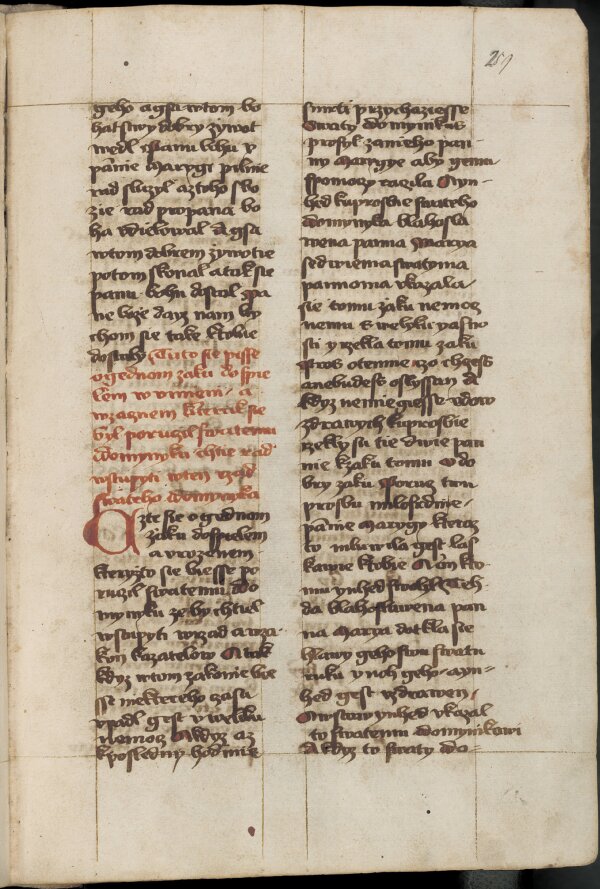 259
geho a gsa w tom bo
hatstwy dobry zywot
wedl
pannie Marygi pilnie
rad sluzyl a z toho sbo
zie rad pro pana bo
ha vdielowal A gsa
w tom dobrem zywotie
potom skonal a tak sie
panu bohu dostal
ne boze dayz nam by
chom sie take k tobie
dostaly Tuto sie pisse
o gednom zaku dospie
lem w vmieni a
wzacznem kterak sie
byl poruczil swatemu
Domynyku chtie rad
wstupyti w ten rzad
swateho Domynyka
Czte sie o gednom
zaku dospielem
a vrozenem
kteryzto sie biesse po
ruczil swatemu Do
mynyku ze by chtiel
wstupyti w rzad a w za
kon kazatelow A tak
kdyz w tom zakonie bie
sse niektereho czasu
vpadl gest v weliku
nemocz A kdyz az
k posledny hodinie
smrti przychaziesse
Swaty domynykus
prosyl za nieho pan
ny Marygie aby gemu
spomoczy raczila A yn
hed k uprosbie swateho
domynyka blahosla
wena panna Marya
se dwiema swatyma
pannoma vkazala
sie tomu zaku nemocz
nemu s welyku yasno
sti y rzekla tomu zaku
Pros ote mne czo chczess
a nebudess oslyssan A
kdyz nemiegiesse vdow
zdrawych k uprosbie
rzekly su tie dwie pan
nie k zaku tomu O do
bry zaku Porucz tuto
prosbu milosrdnie
pannie Marygy kteraz
to mluwila gest las
kawie k tobie A on k to
mu ynhed swolil Teh
da blahoslawena pan
na Marya dotkla sie
hlawy geho swu swatu
ruku y noh geho a yn
hed gest vzdrawen
A wssecky ynhed vkazal
to swatemu domynikowi
A kdyz to swaty do